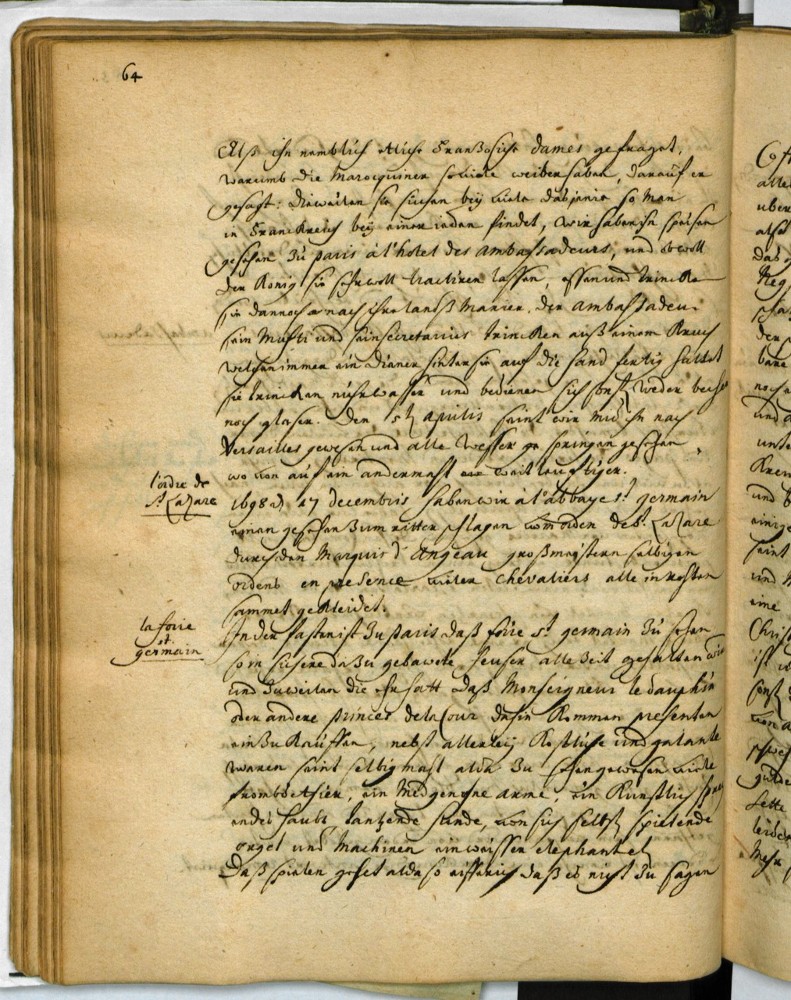 64
Alß ihn nemblich etliche Französiche dames gefraget,
warumb die Marocquiner so viele weiber haben, darauf er
gesagt: dieweilen sie suchen beÿ viele dasjenie so man
in Franckreich beÿ einer ieden findet, wir haben ihn speisen
gesehen zu paris à l'hotel des ambassadeurs, und obwoll
der König sie sehr woll tractiren lassen, essen und trincken
sie dannoch nach ihre landß Manier. der ambassadeur
sein Mufti und sein secretarius trincken auß einem Kruch
welchen immer ein diener hinter sie auf die hand fertig haltet
sie trincken nichts wasser und bedienen sich sonst weder becher
noch glaser. Den 5t aprilis seint wir mit ihn nach
Versailles gewesen und alle Wesser springen gesehen
wo von auf ein andermahl weitleuftiger.
l'ordre de
St Lazare
1698 d 17 decembris haben wir à l'abbaye st germain
einen gesehen zum ritter schlagen vom orden de St. Lazare
durch den Marquis d'Angeau großmeistern selbigen
ordens en presence vieler chevaliers alle in rohten
sammet gekleidet.
la foire
st.
germain
In der fasten ist zu paris daß foire st germain zu sehen
so in sichere dazu gebawete heuser alle Zeit gehalten wird
und zuweilen die Ehr hatt daß Monseigneur le dauphin
oder andere princes de la Cour dahin kommen presenten
ein zu kauffen, nebst allerleÿ köstliche und galante
waren seint selbigmahl alda zu sehen gewesen viele
ein Medgen ohne arme, ein künstlich
tantzende hunde, von sich selbst spielende
orgel und Machinen ein weissen elephant et
Daß spielen gehet alda so daß es nicht zu sagen